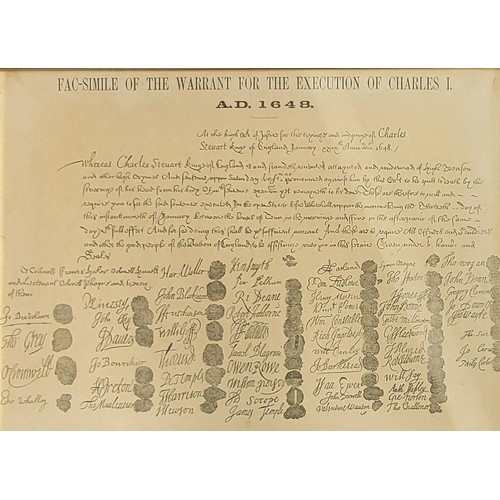 FAC-SIMILE OF THE WARRANT FOR THE EXECUTION OF CHARLES I.
A.D. 1648.
At the high Court of Justice for the tryinge and iudginge of Charles
Stewart Kinge of England January Anno Dni 1648.
Whereas Charles Stewart Kinge of England is and standeth convicted attaynted and condemned of High Treason
and other high Crymes And sentence uppon Saturday last pronounced against him by this Cort to be putt to death by the
severinge of his head from his body Of wch sentence execution yet remayneth to be done These are therefore to will and
require you to see the said sentence executed In the open Streete before Whitehall uppon the morrowe being the Thirtieth day of
this instante moneth of January betweene the houres of Tenn in the morninge and Five in the afternoone of the same
day wth full effect And for soe doing this shall be yor sufficient warrant And these are to require All Officers and Souldiers
and other the good people of this Nation of England to be assistinge unto you in this Service Given under our hands and
Seales
To Collonell Francis Hacker Colonell Huncks
and Lieutenant Colonell Phayre and to every
of them
Har Waller
John Blakiston
J Hutchinson
Willi Goff
Tho Pride
Pe Temple
T Harrison
J Hewson
Hen Smyth
Per Pelham
Ri Deane
Robert Tichborne
H Edwardes
Daniel Blagrave
Owen Rowe
William Purefoy
Ad Scrope
James Temple
Jo Bradshawe
Tho Grey
O Cromwell
Edw Whalley
M Livesey
John Okey
J Davers
Jo Bourchier
H Ireton
Tho Mauleverer
A Garland
Edm Ludlowe
Henry Marten
Vint Potter
Wm Constable
Rich Ingoldsby
Will Cawley
Jo Barkstead
Isaa Ewer
John Dixwell
Valentine Wauton
Symon Mayne
Tho Horton
J Jones
John Penne
Gilbt Millington
G Fleetwood
J Alured
Robt Lilburne
Will Say
Anth Stapley
Gre Norton
Tho Challoner
Tho Wogan
John Venn
Gregory Clement
Jo Downes
Tho Wayte
Tho Scot
Jo Carew
Miles Corbet